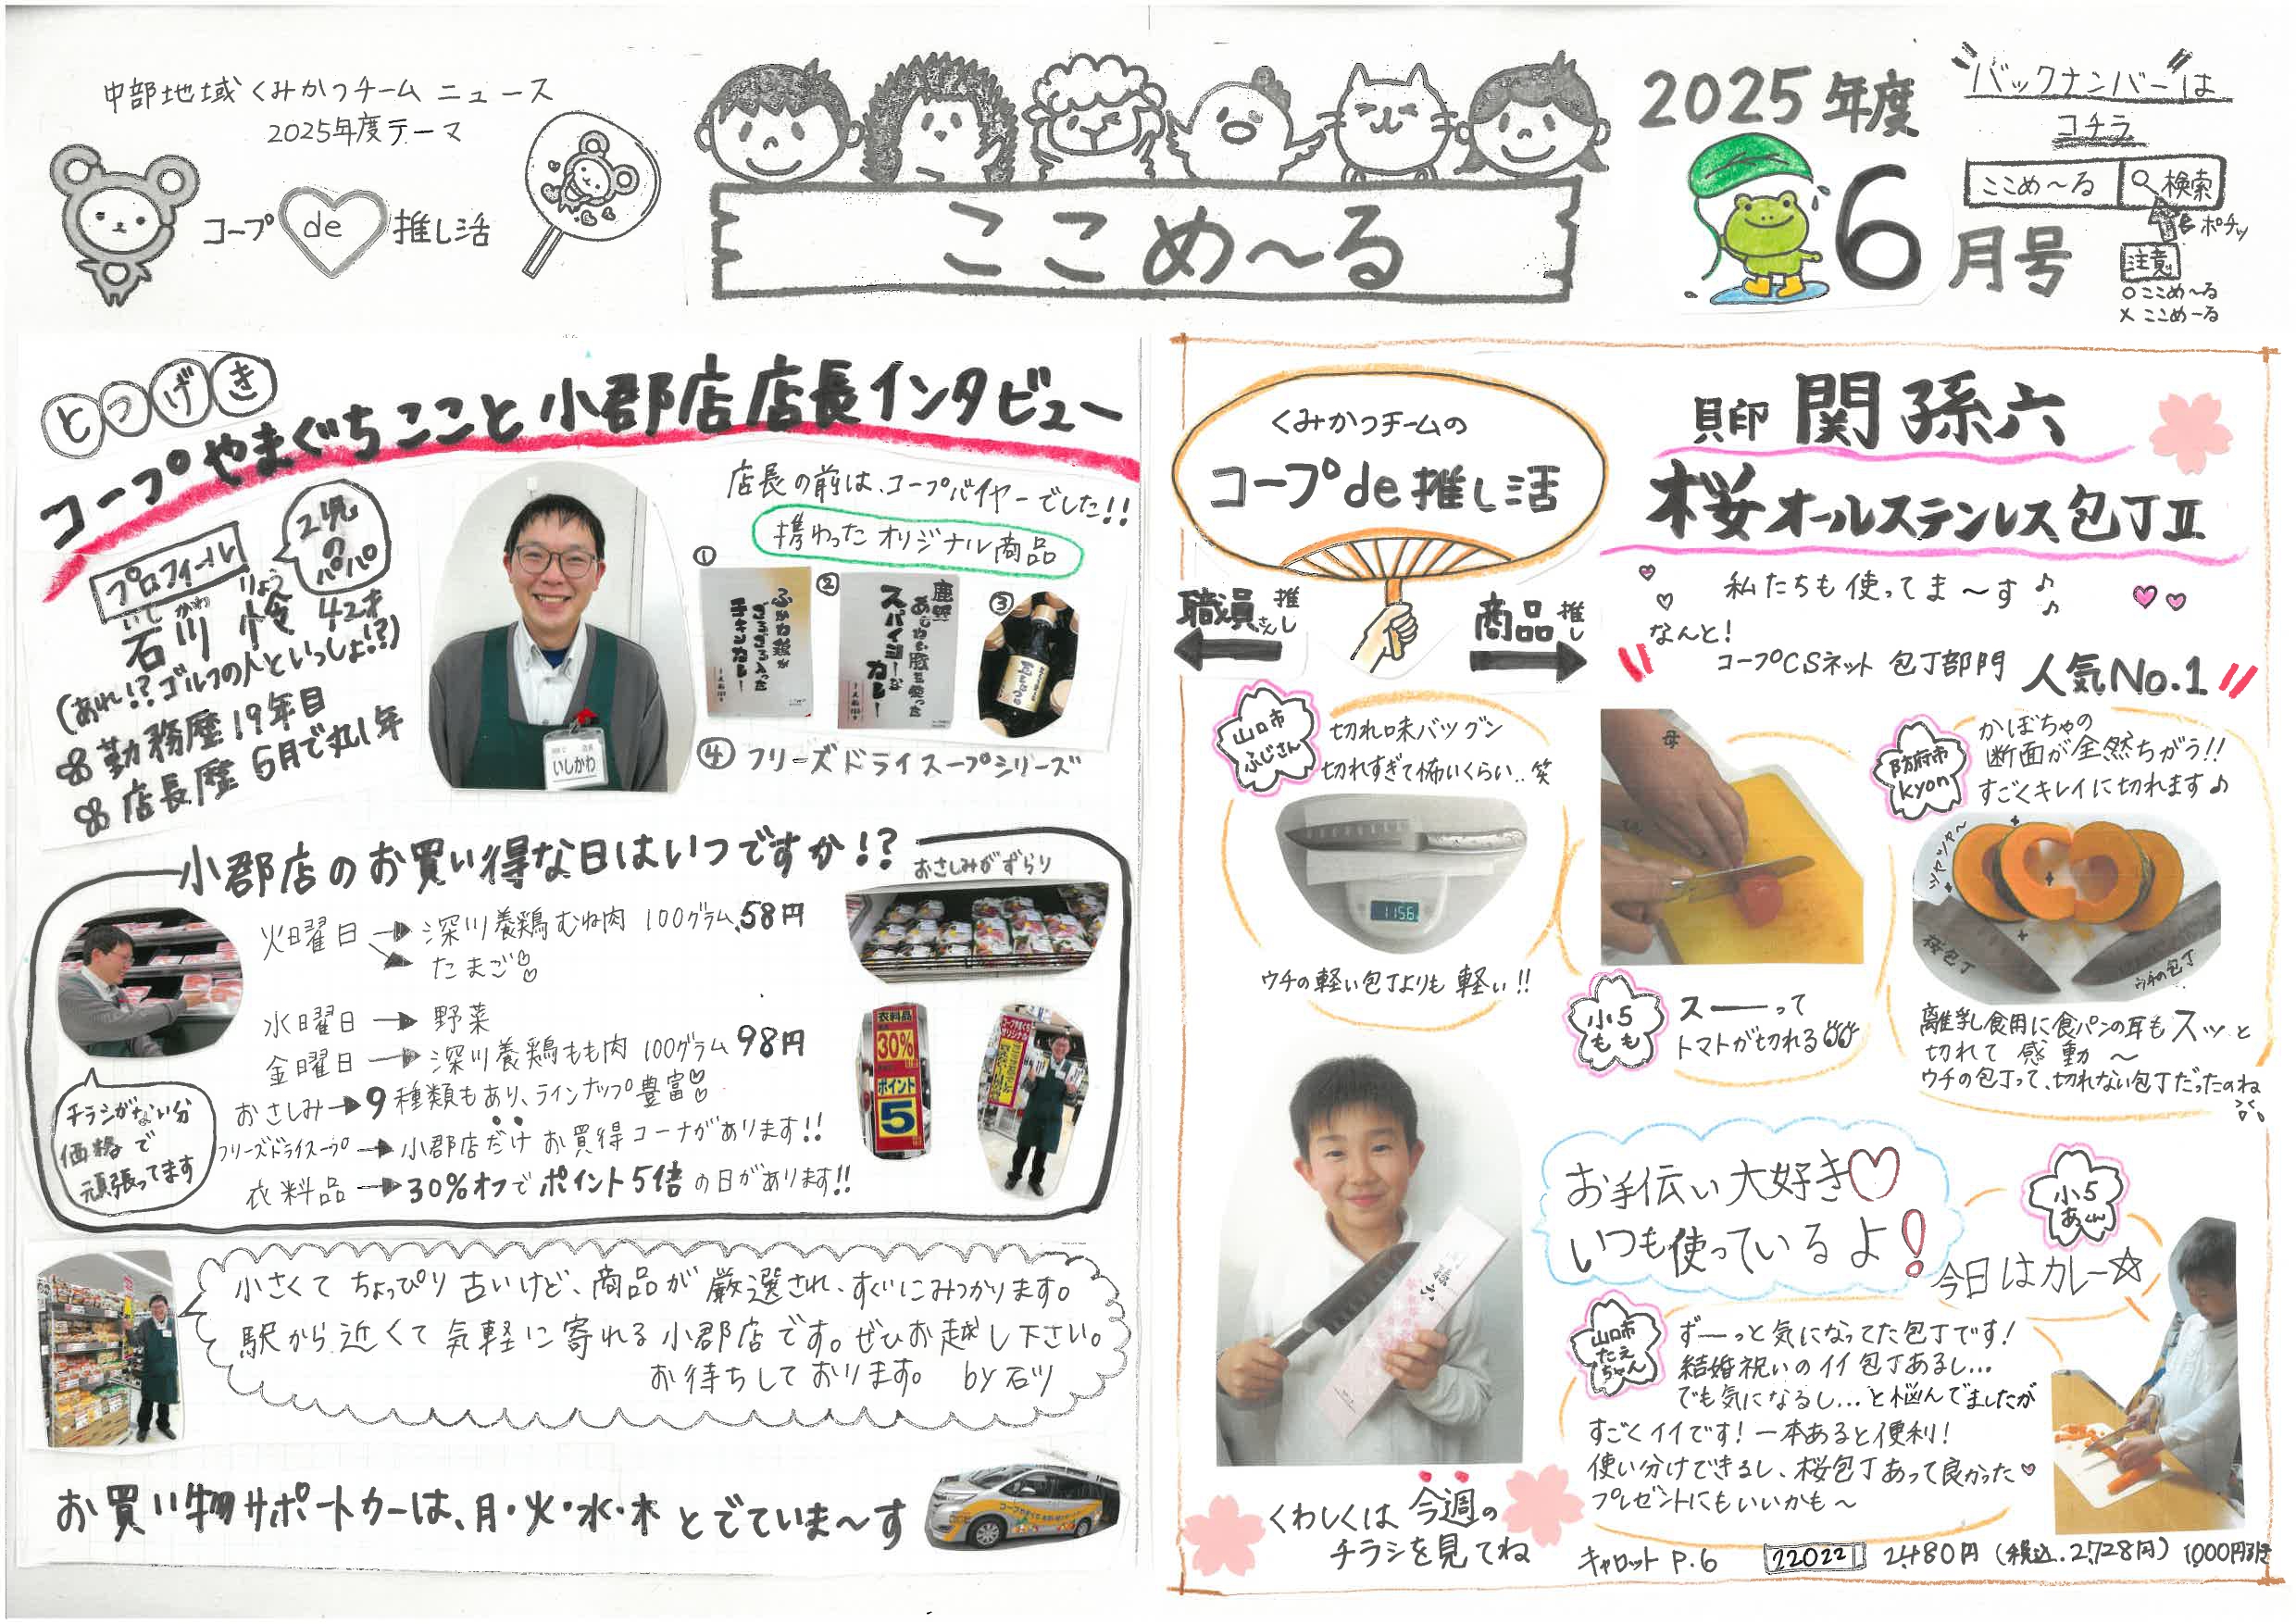 中部地域くみかつチームニュース
2025年度テーマ
コープ de 推し活
ここめ～る
2025年度
6月号
"バックナンバー"は
コチラ
ここめ～る 検索
ポチッ
注意
○ ここめ～る
× ここめーる
とつげき
コープやまぐちこことと小郡店店長インタビュー
プロフィール
2児
の
パパ
いしかわ りょう
石川 怜 42才
(あれ!?ゴルフの人といっしょ!?)
勤務歴19年目
店長歴 6月で丸1年
いしかわ
店長の前は、コープバイヤーでした!!
携わったオリジナル商品
①
ふかわ鶏が
ごろごろ入った
チキンカレー
②
鹿野
あじわい豚を使った
スパイシーな
カレー
③
④フリーズドライスープシリーズ
小郡店のお買い得な日はいつですか!?
おさしみがずらり
火曜日→深川養鶏むね肉 100グラム 58円
たまご
水曜日→野菜
金曜日→深川養鶏もも肉 100グラム 98円
おさしみ→9種類もあり、ラインナップ豊富
フリーズドライスープ→小郡店だけお買得コーナがあります!!
衣料品→30%オフでポイント5倍の日があります!!
チラシがない分
価格で
頑張ってます
衣料品
30%
ポイント
5
小さくてちょっぴり古いけど、商品が厳選され、すぐにみつかります。
駅から近くて気軽に寄れる小郡店です。ぜひお越し下さい。
お待ちしております。 by石川
お買い物サポートカーは、月・火・水・木とでていま～す
くみかつチームの
コープde推し活
職員さん推し
商品推し
貝印 関孫六
桜オールステンレス包丁Ⅱ
私たちも使ってま～す♪♪
なんと!
コープCSネット 包丁部門 人気No.1
山口市
ふじさん
切れ味バツグン
切れすぎて怖いくらい..笑
115.6
ウチの軽い包丁よりも軽い!!
母
小5
もも
スーーって
トマトが切れる
防府市
kyon
かぼちゃの
断面が全然ちがう!!
すごくキレイに切れます♪
ツヤツヤ～
桜包丁
ウチの包丁
離乳食用に食パンの耳もスッと
切れて感動～
ウチの包丁って、切れない包丁だったのね
お手伝い大好き♡
いつも使っているよ!
小5
あくん
今日はカレー☆
山口市
たえ
ちゃん
ずーっと気になってた包丁です!
結婚祝いのイイ包丁あるし...
でも気になるし...と悩んでましたが
すごくイイです!一本あると便利!
使い分けできるし、桜包丁あって良かった♡
プレゼントにもいいかも～
くわしくは今週の
チラシを見てね
キャロットP.6 22022 2,480円(税込.2,728円) 1,000円引き